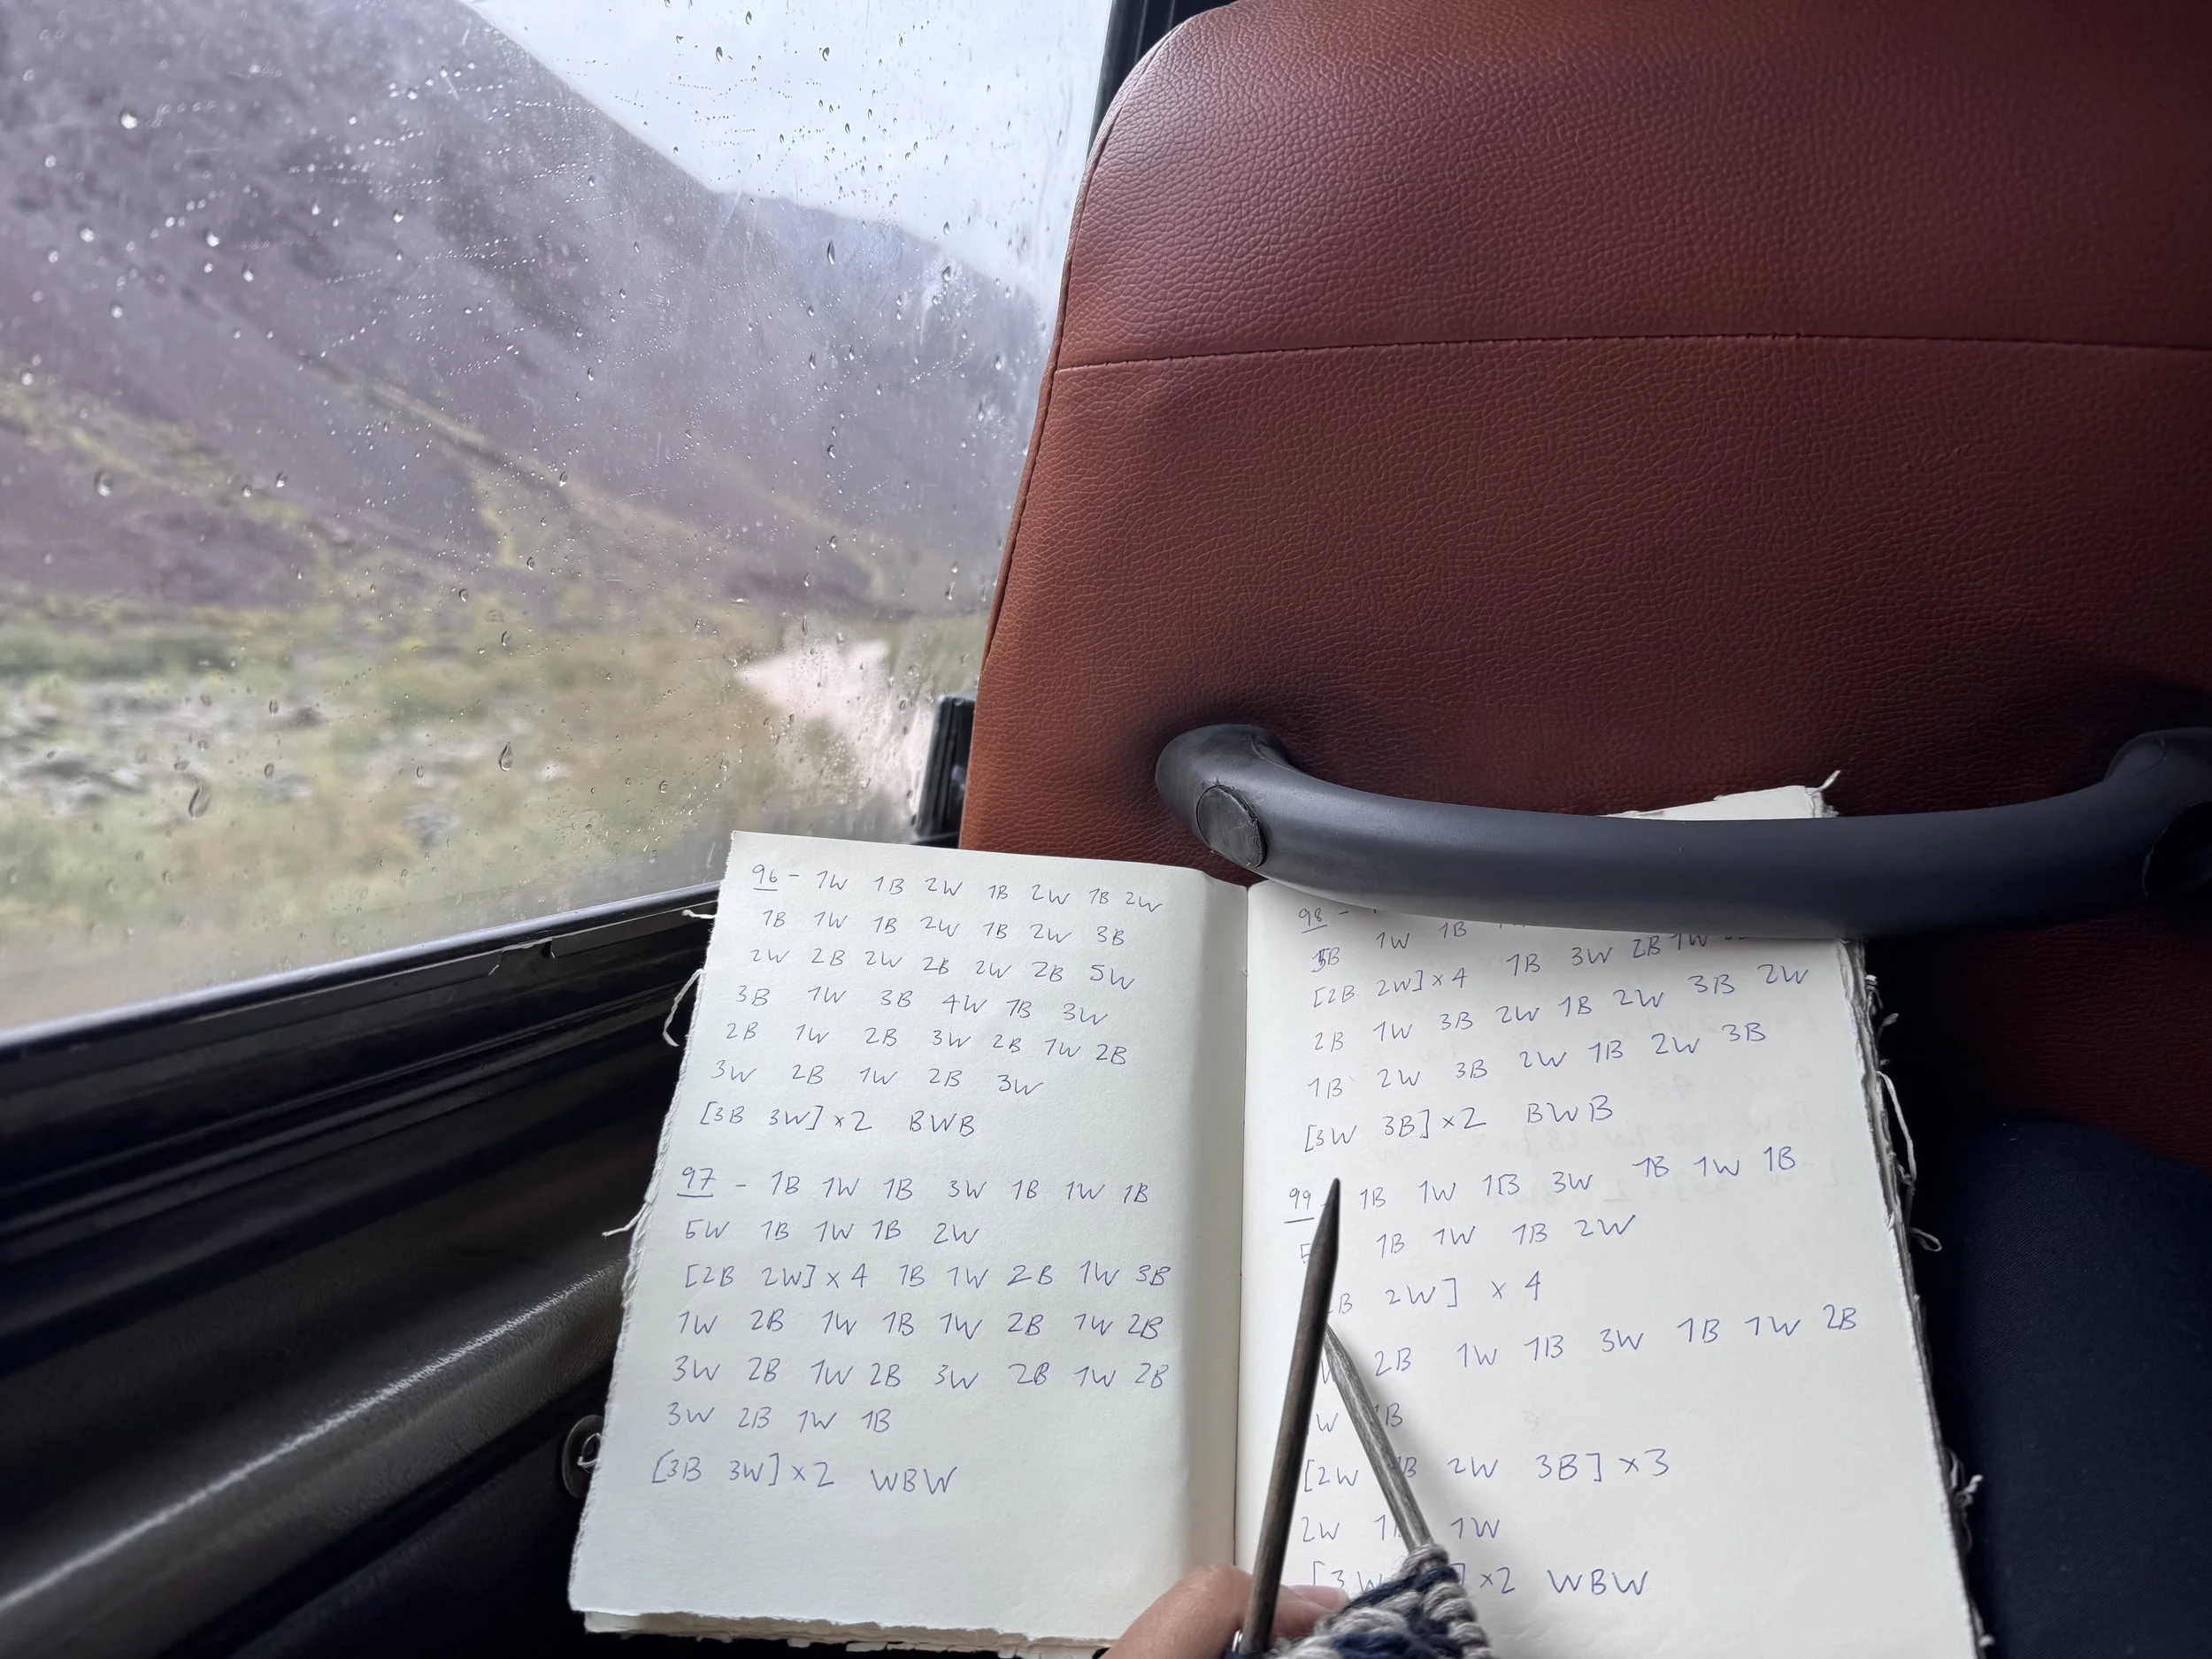 96 - 1W 1B 2W 1B 2W 1B 2W
1B 1W 1B 2W 1B 2W 3B
2W 2B 2W 2B 2W 2B 5W
3B 1W 3B 4W 1B 3W
2B 1W 2B 3W 2B 1W 2B
3W 2B 1W 2B 3W
[3B 3W] x 2 BWB
97 - 1B 1W 1B 3W 1B 1W 1B
5W 1B 1W 1B 2W
[2B 2W] x 4 1B 1W 2B 1W 3B
1W 2B 1W 1B 1W 2B 1W 2B
3W 2B 1W 2B 3W 2B 1W 2B
3W 2B 1W 1B
[3B 3W] x 2 WBW
98 -
1W 1B
[2B 2W] x 4 1B 3W 2B 1W
2B 1W 3B 2W 1B 2W 3B 2W
1B 2W 3B 2W 1B 2W 3B
[3W 3B] x 2 BWB
99 1B 1W 1B 3W 1B 1W 1B
1B 1W 1B 2W
2W] x 4
2B 1W 1B 3W 1B 1W 2B
[2W 2W 3B] x 3
2W 1W
[3W ] x2 WBW